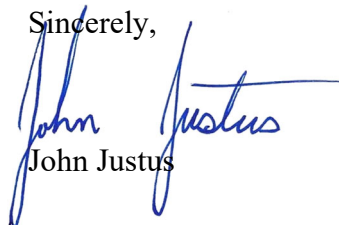 Sincerely,
John Justus
John Justus